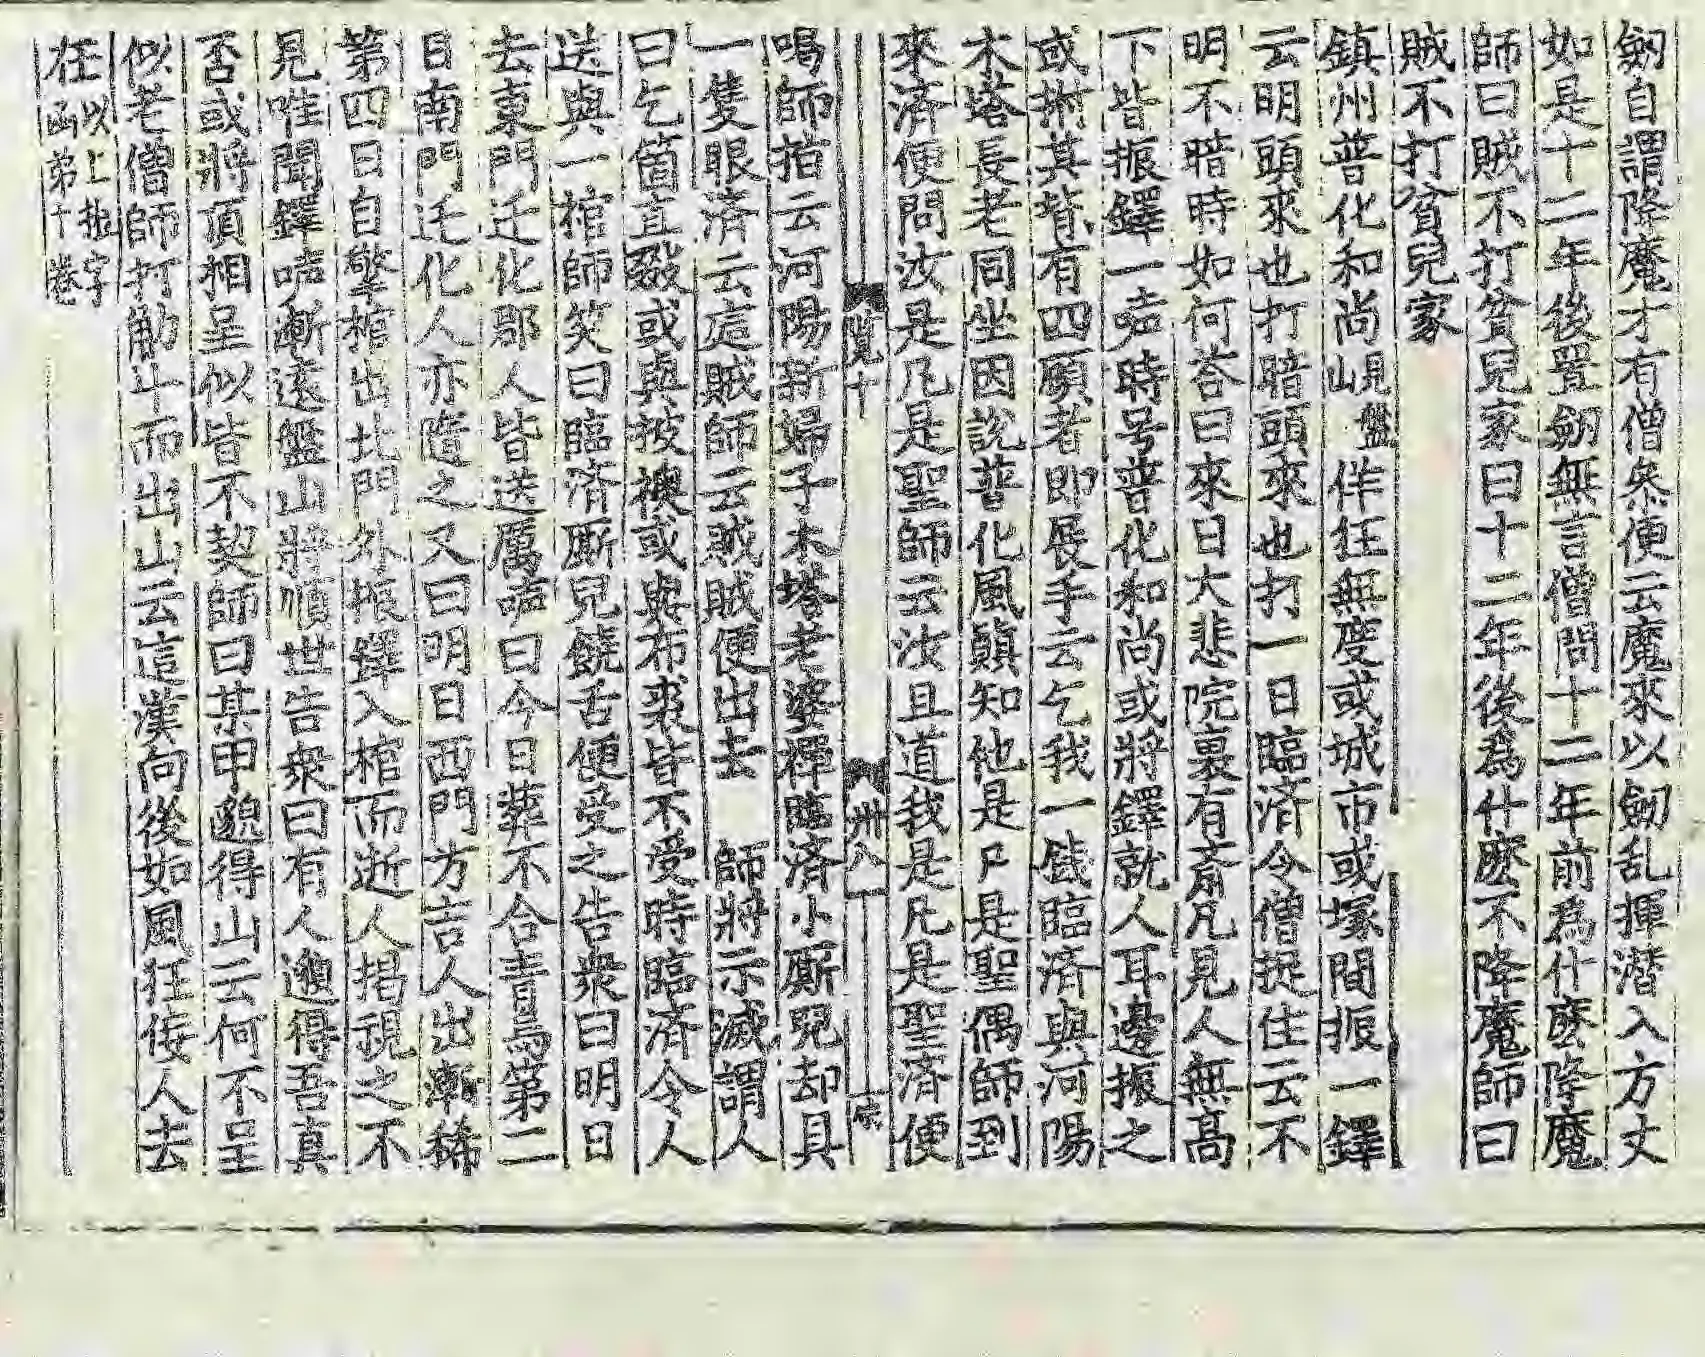 劒自謂降魔才有僧叅便云魔來以劒乱揮潜入方丈
如是十二年後置劒無言僧問十二年前爲什麽降魔
師曰賊不打貧兒家曰十二年後爲什麽不降魔師曰
賊不打貧兒家
鎮州普化和尚嗣盤山佯狂無度或城市或塚間振一鐸
云明頭來也打暗頭來也打一日臨済令僧捉住云不
明不暗時如何荅曰來日大悲院裏有斎凡見人無高
下皆振鐸一声時号普化和尚或將鐸就人耳邊振之
或拊其背有四顧者即展手云乞我一錢臨済與河陽
木塔長老同坐因說普化風顚知他是凡是聖偶師到
來済便問汝是凡是聖師云汝且道我是凡是聖済便
覽十 卅八 宗
喝師指云河陽新婦子木塔老婆禪臨済小厮兒却具
一隻眼済云這賊師云賊賊便出去 師將示滅謂人
曰乞箇直裰或與披襖或與布裘皆不受時臨済令人
送與一棺師笑曰臨済厮兒饒舌便受之告衆曰明日
去東門迁化郡人皆送厲声曰今日葬不合青烏第二
日南門迁化人亦隨之又曰明日西門方吉人出漸稀
第四日自擎棺出北門外振鐸入棺而逝人揭視之不
見唯聞鐸声漸遠盤山將順世告衆曰有人邈得吾真
否或將頂相呈似皆不契師曰某甲邈得山云何不呈
似老僧師打觔斗而出山云這漢向後如風狂佞人去
在 以上拙字
函苐十卷